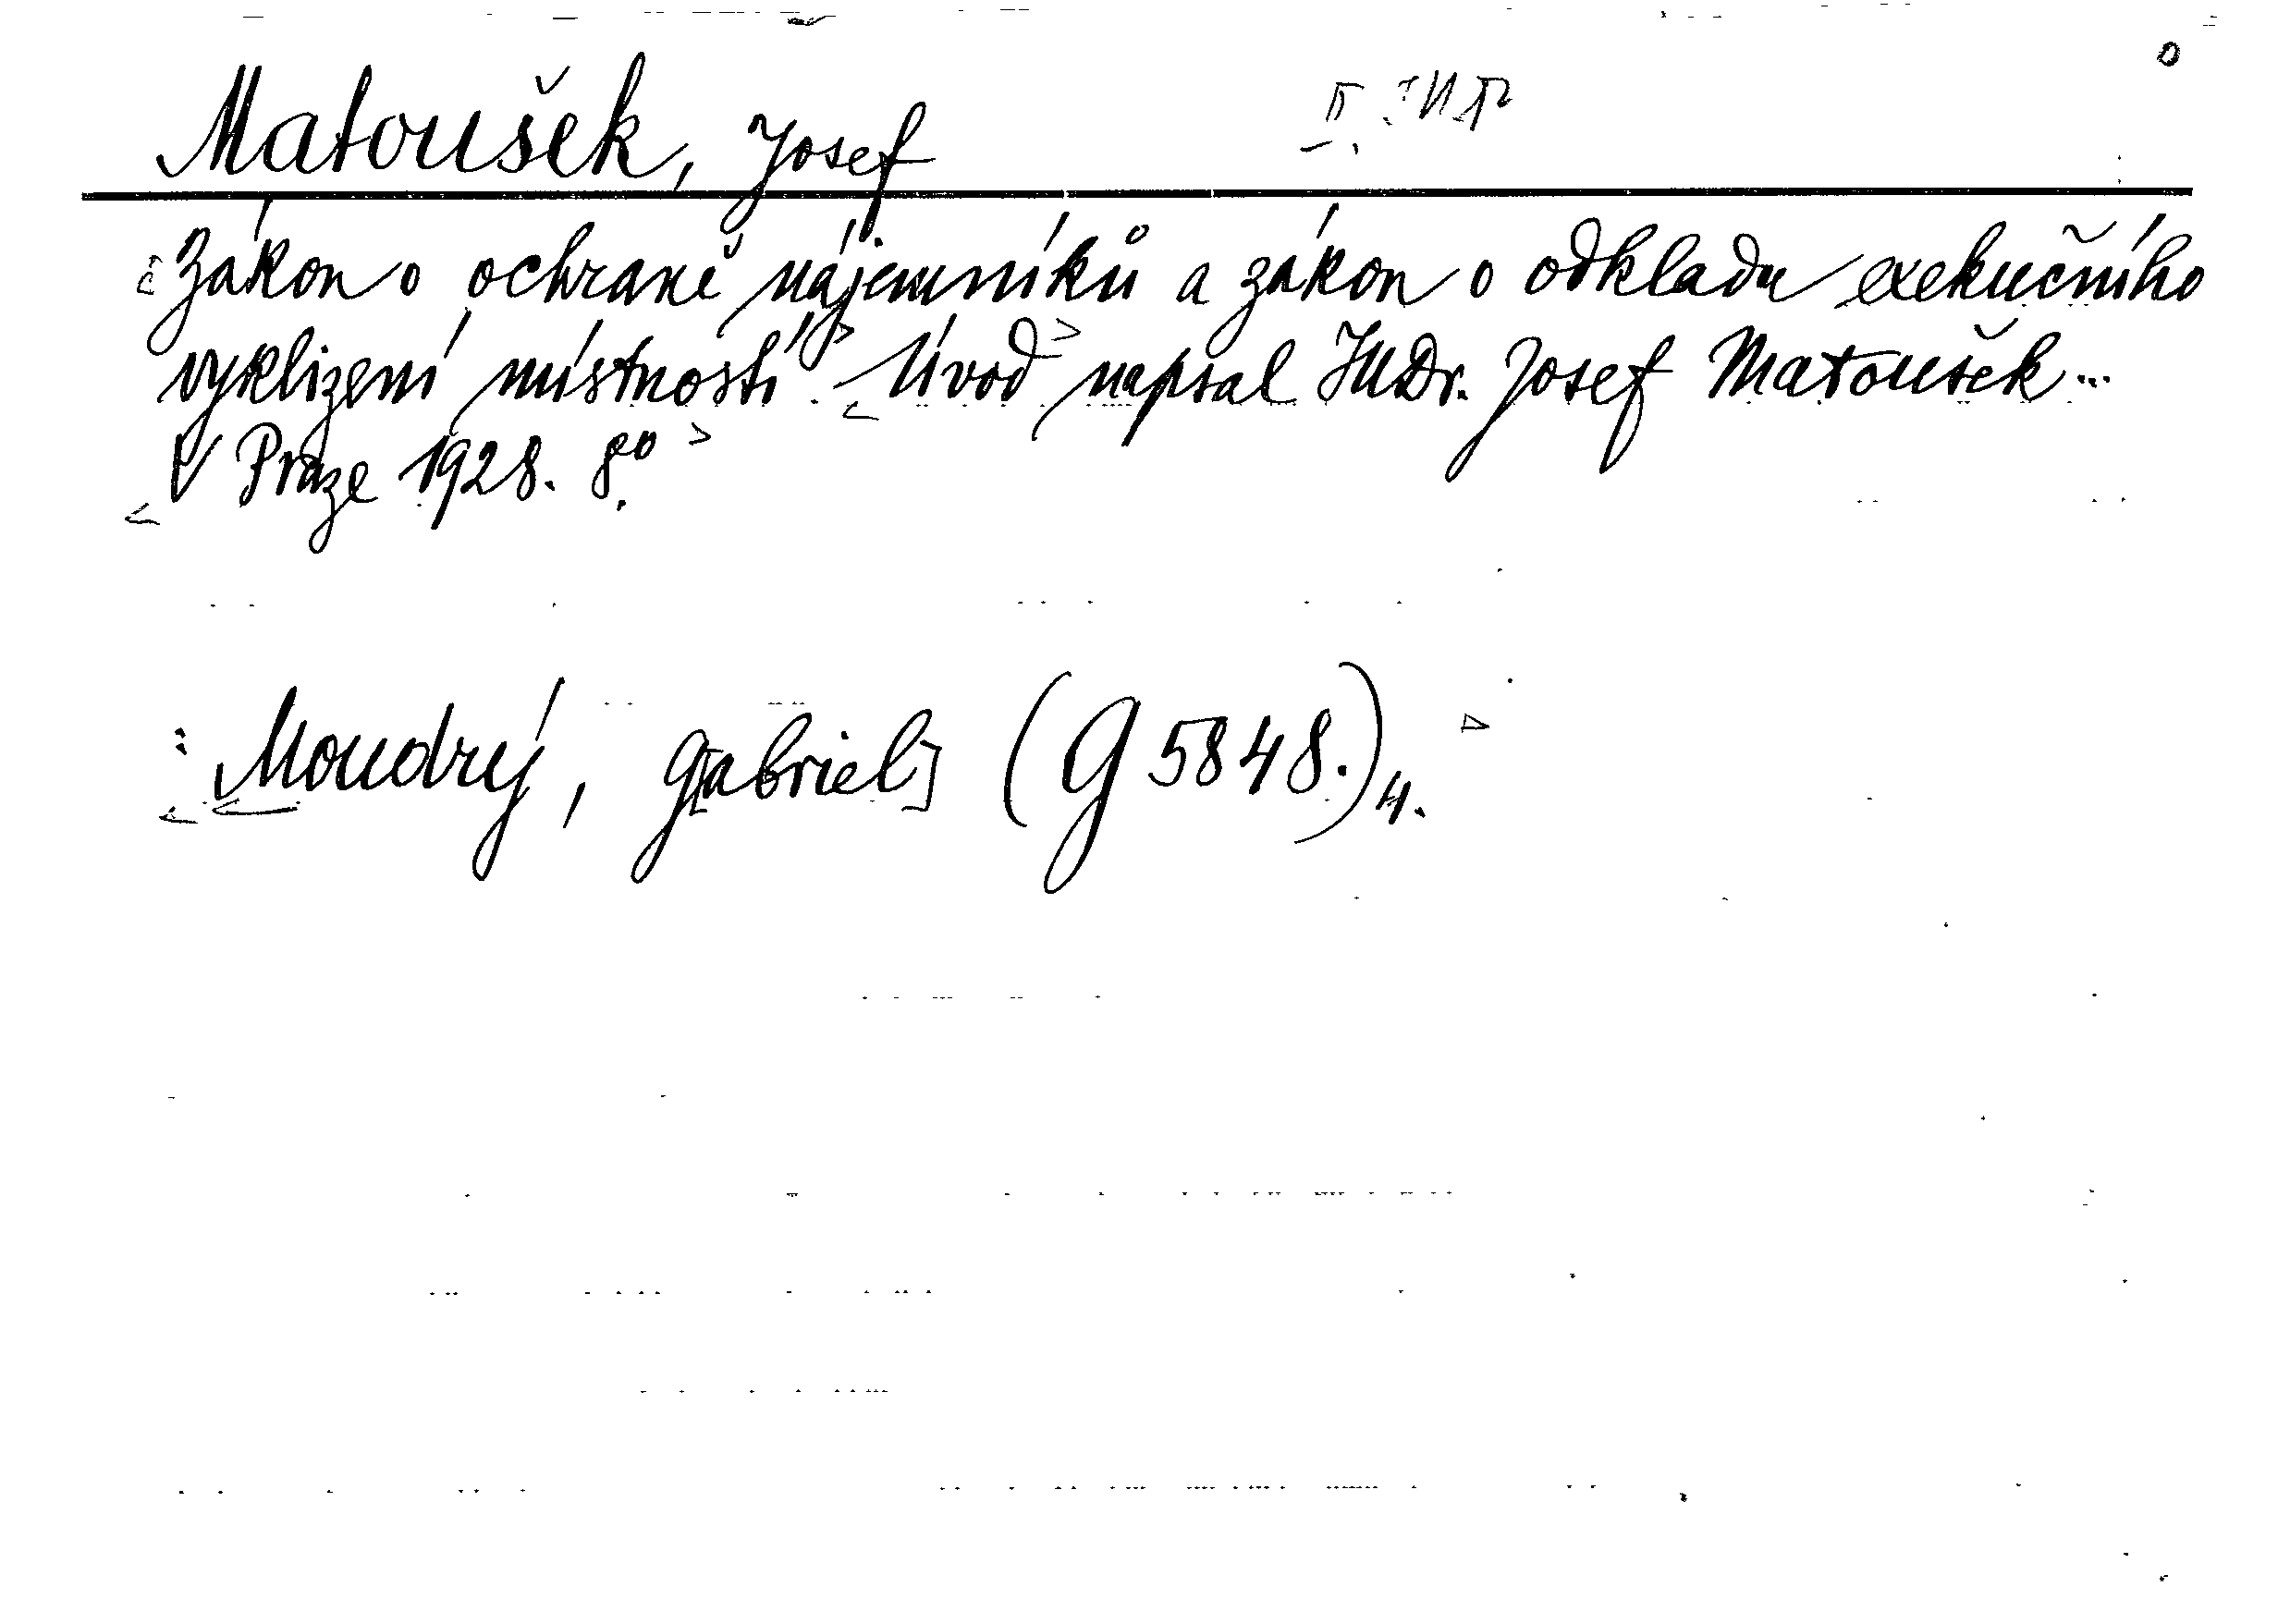 Matoušek, Josef
Zákon o ochraně nájemníků a zákon o odkladu exekučního
vyklizení místností. Úvod napsal JUDr. Josef Matoušek...
V Praze 1928. 8°.
: Moudrý, G[abriel] (G 5848.) 4.